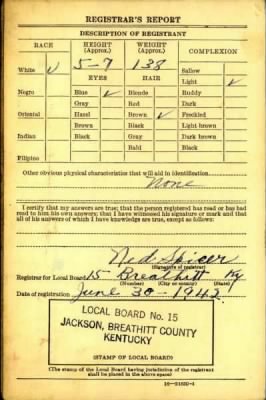 REGISTRAR'S REPORT
DESCRIPTION OF REGISTRANT
RACE HEIGHT (Approx.) WEIGHT (Approx.) COMPLEXION
White ✓ 5-9 138 Sallow
EYES HAIR Light ✓
Negro Blue ✓ Blonde Ruddy
Gray Red Dark
Oriental Hazel Brown ✓ Freckled
Brown Black Light brown
Indian Black Gray Dark brown
Bald Black
Filipino
Other obvious physical characteristics that will aid in identification
None
I certify that my answers are true; that the person registered has read or has had
read to him his own answers; that I have witnessed his signature or mark and that
all of his answers of which I have knowledge are true, except as follows:
Ned Spicer
(Signature of registrar)
Registrar for Local Board 15 Breathitt Ky
(Number) (City or county) (State)
Date of registration June 30-1942
LOCAL BOARD No. 15
JACKSON, BREATHITT COUNTY
KENTUCKY
(STAMP OF LOCAL BOARD)
(The stamp of the Local Board having jurisdiction of the registrant
shall be placed in the above space)